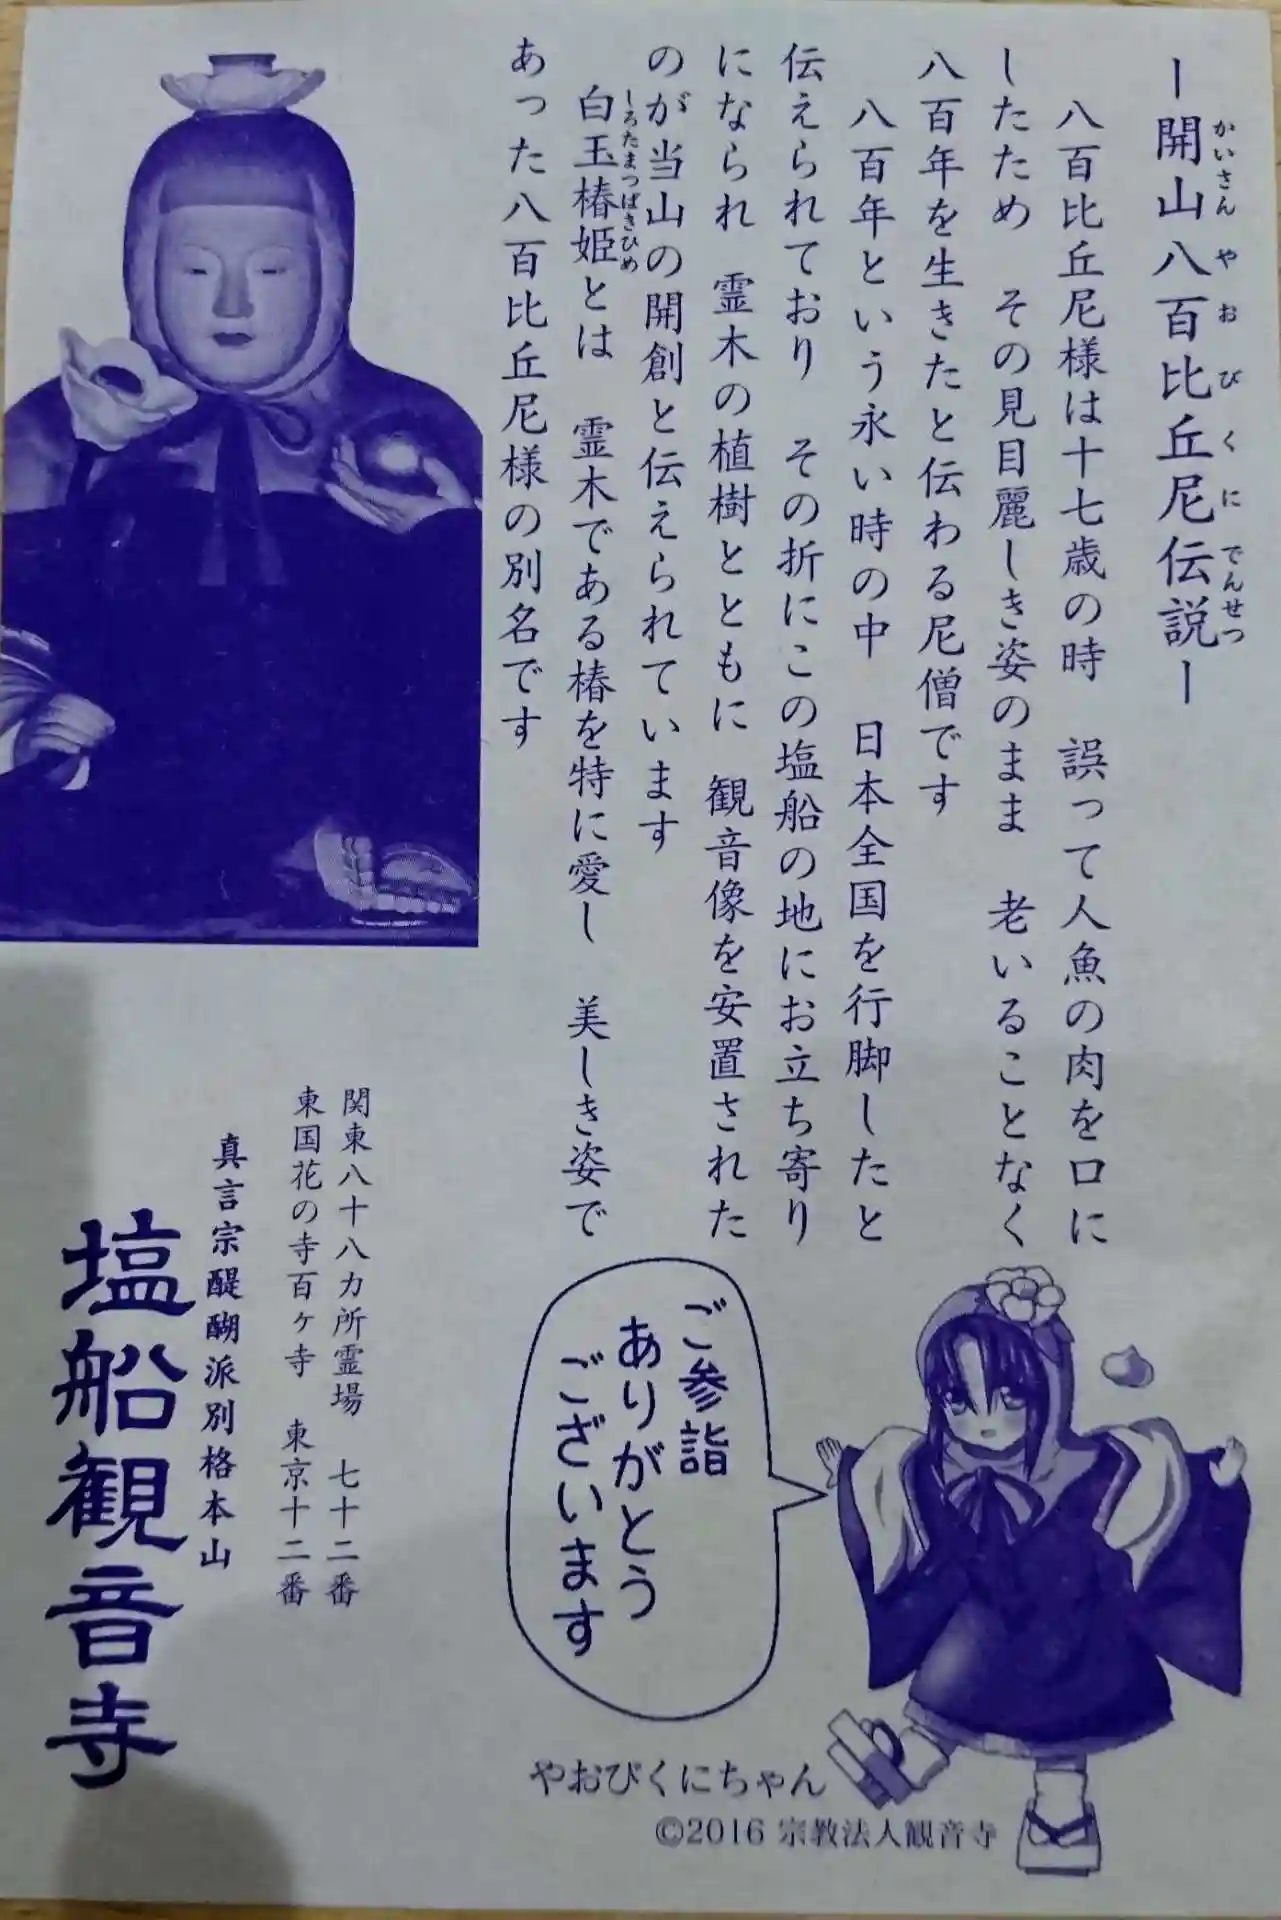 ー開山八百比丘尼伝説ー
かいさんやおびくにでんせつ
八百比丘尼様は十七歳の時　誤って人魚の肉を口に
したため　その見目麗しき姿のまま　老いることなく
八百年を生きたと伝わる尼僧です
八百年という永い時の中　日本全国を行脚したと
伝えられており　その折にこの塩船の地にお立ち寄り
になられ　霊木の植樹とともに　観音像を安置された
のが当山の開創と伝えられています
白玉椿姫とは　霊木である椿を特に愛し　美しき姿で
しろたまつばきひめ
あった八百比丘尼様の別名です
ご参詣
ありがとう
ございます
やおびくにちゃん
©2016 宗教法人観音寺
関東八十八カ所霊場　七十二番
東国花の寺百ヶ寺　東京十二番
真言宗醍醐派別格本山
塩船観音寺